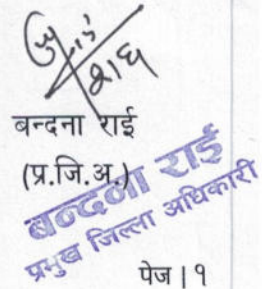 बन्दना राई
(प्र.जि.अ.)
बन्दना राई
प्रमुख जिल्ला अधिकारी
पेज | १